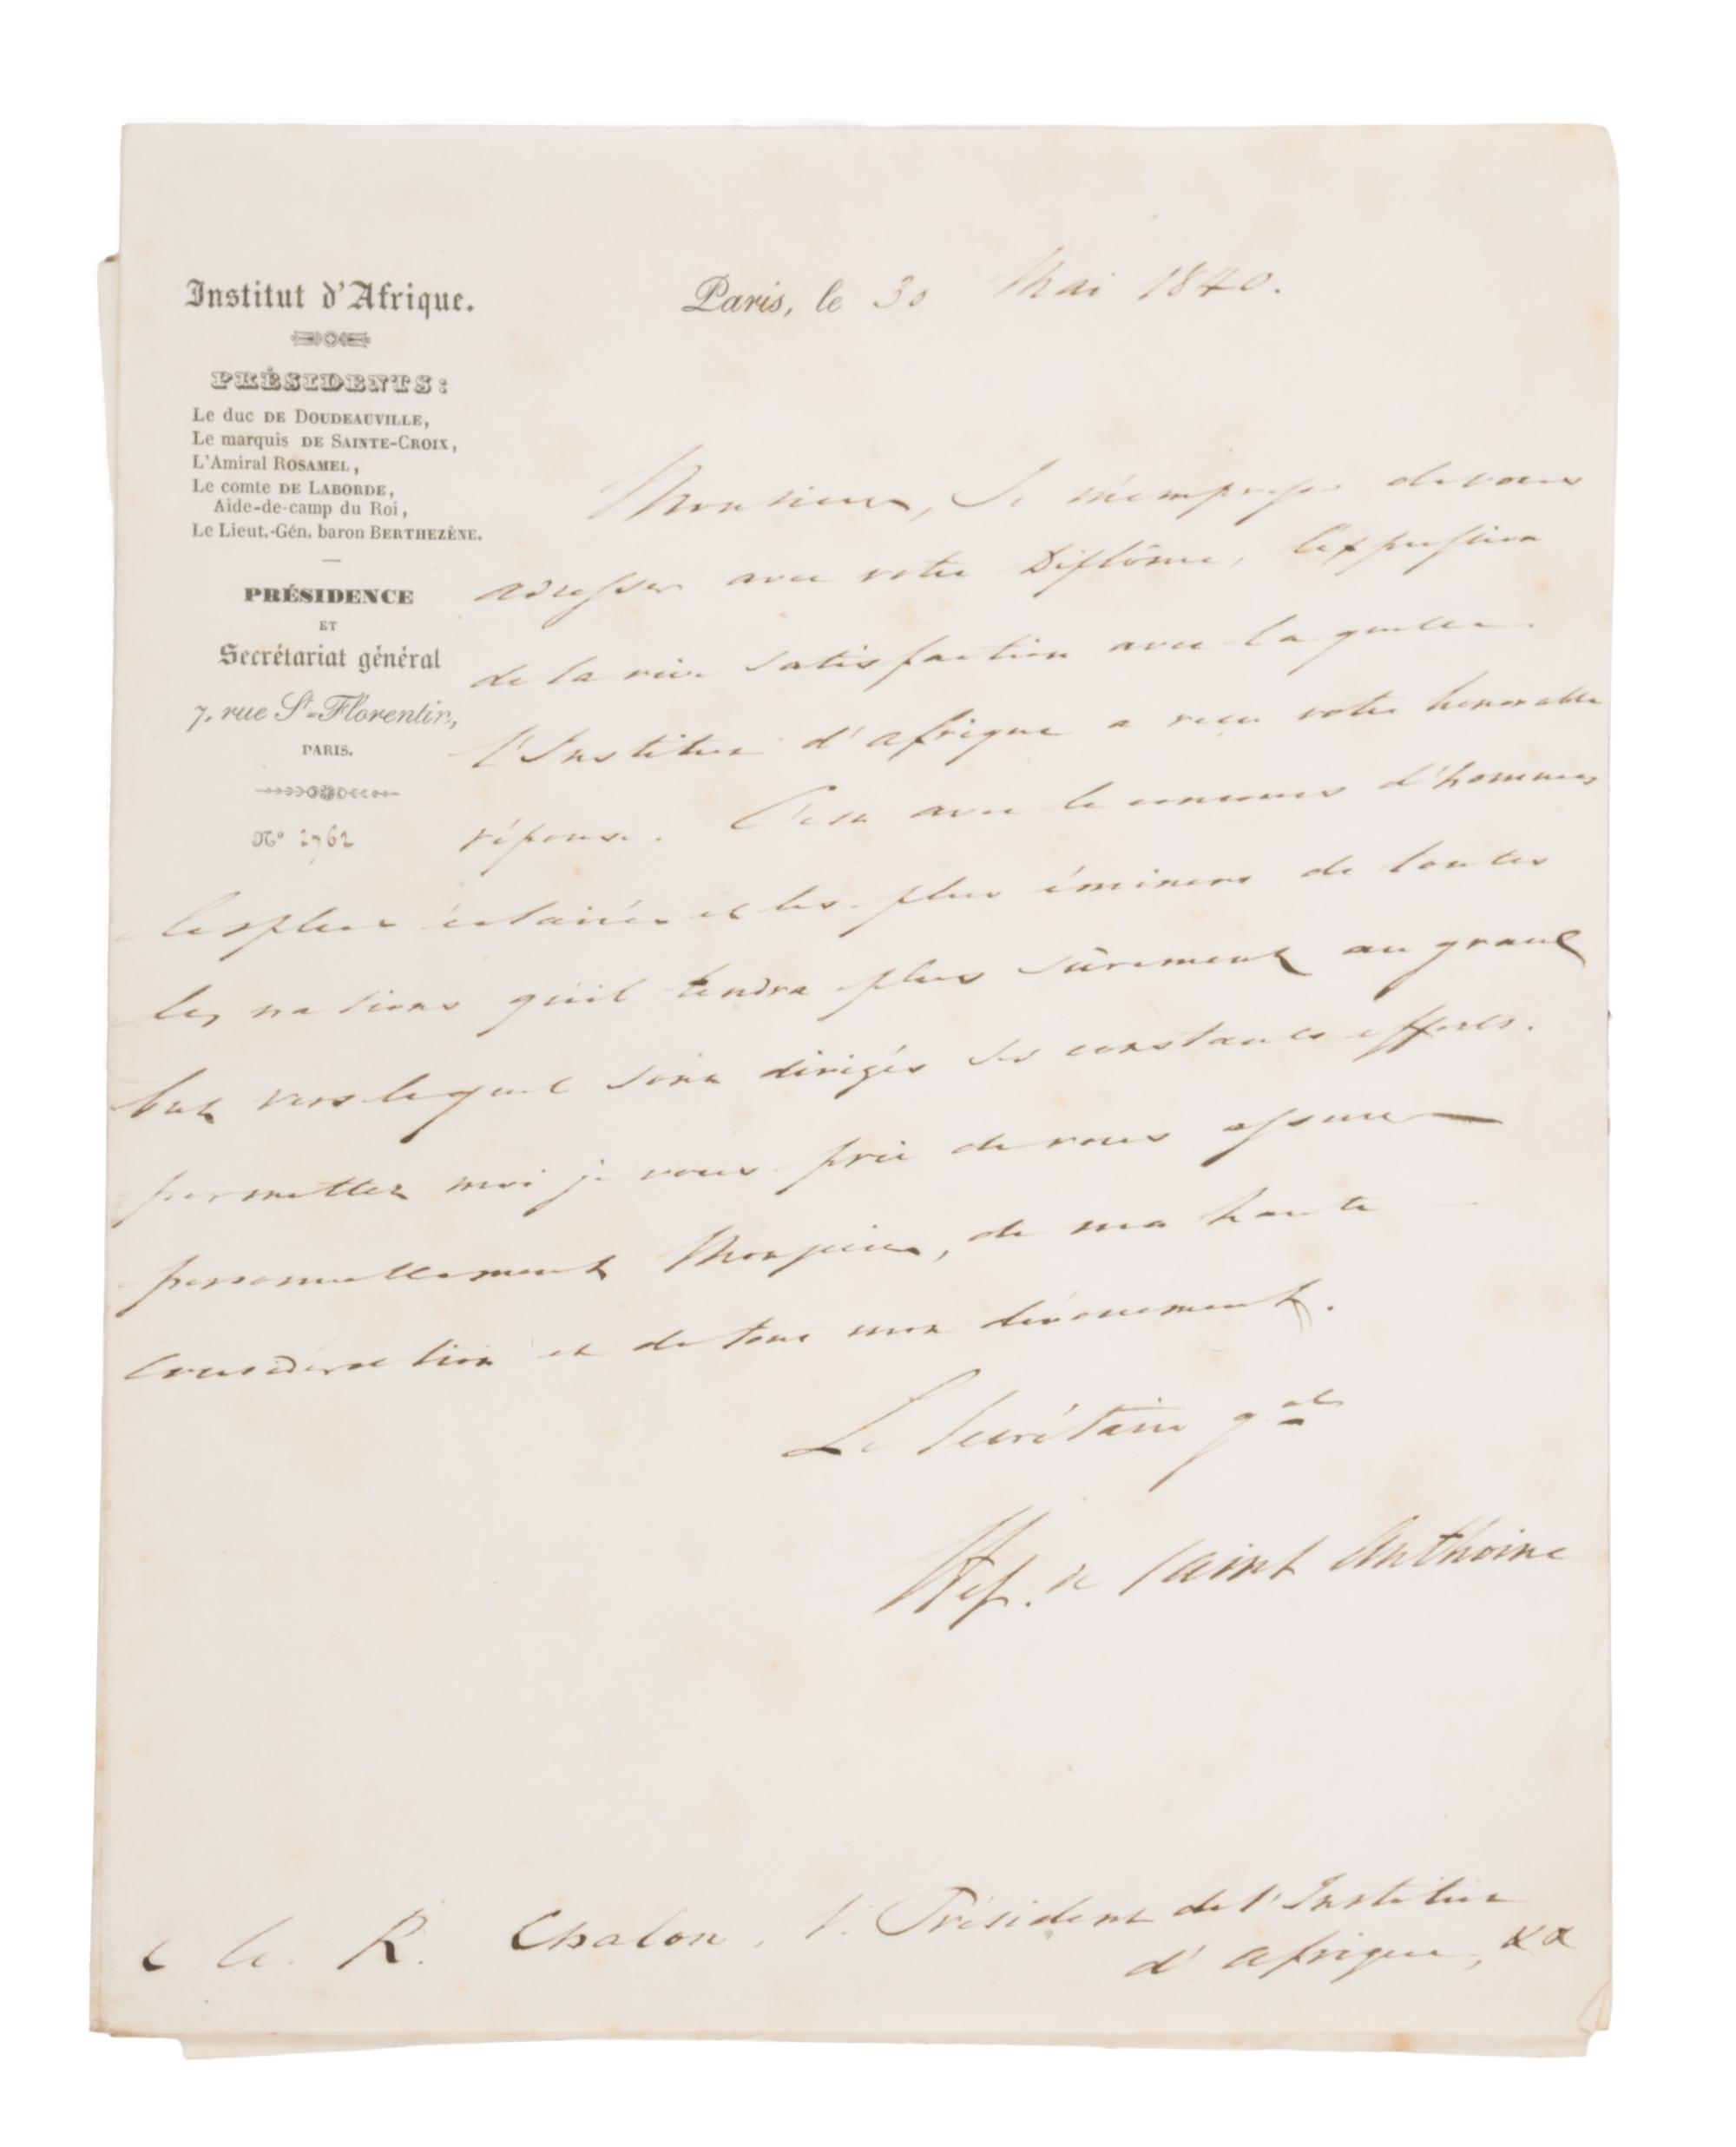 Institut d'Afrique.
PRÉSIDENTS:
Le duc DE DOUDEAUVILLE,
Le marquis DE SAINTE-CROIX,
L'Amiral ROSAMEL,
Le comte DE LABORDE,
Aide-de-camp du Roi,
Le Lieut.-Gén. baron BERTHEZÈNE.
PRÉSIDENCE
ET
Secrétariat général
7, rue St-Florentin,
PARIS.
N° 2762
Paris, le 30 Mai 1840.
Monsieur, Je m'empresse de vous
adresser avec votre Diplôme, l'expression
de la vive satisfaction avec laquelle
l'Institut d'afrique a reçu votre honorable
réponse. C'est avec le concours d'hommes
les plus éclairés et les plus éminens de toutes
les nations qu'il tendra plus sûrement au grand
but vers lequel sont dirigés ses constants efforts.
permettez moi je vous prie de vous assurer
personnellement Monsieur, de ma haute
considération et de tout mon dévouement.
Le Secrétaire gal
de Saint Anthoine
R. Chalon, V. Président de l'Institut
d'afrique,